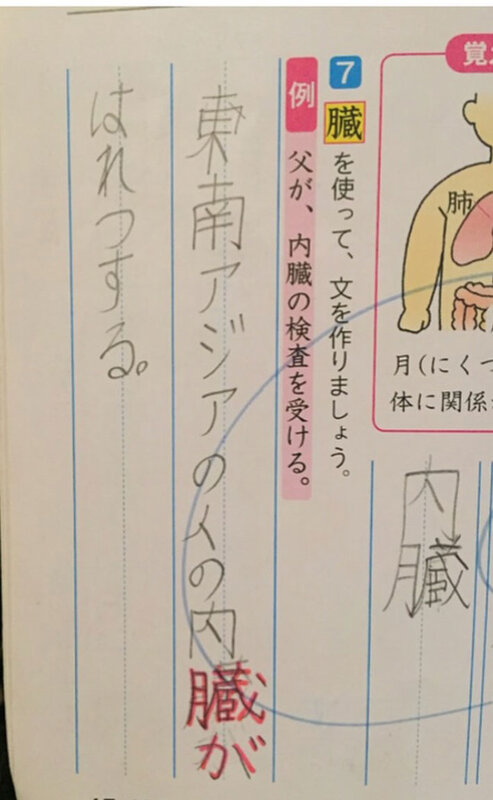 覚
肺
月(にくづ
体に関係
7 臓を使って、文を作りましょう。
例 父が、内臓の検査を受ける。
内臓
東南アジアの人の内臓が
はれつする。